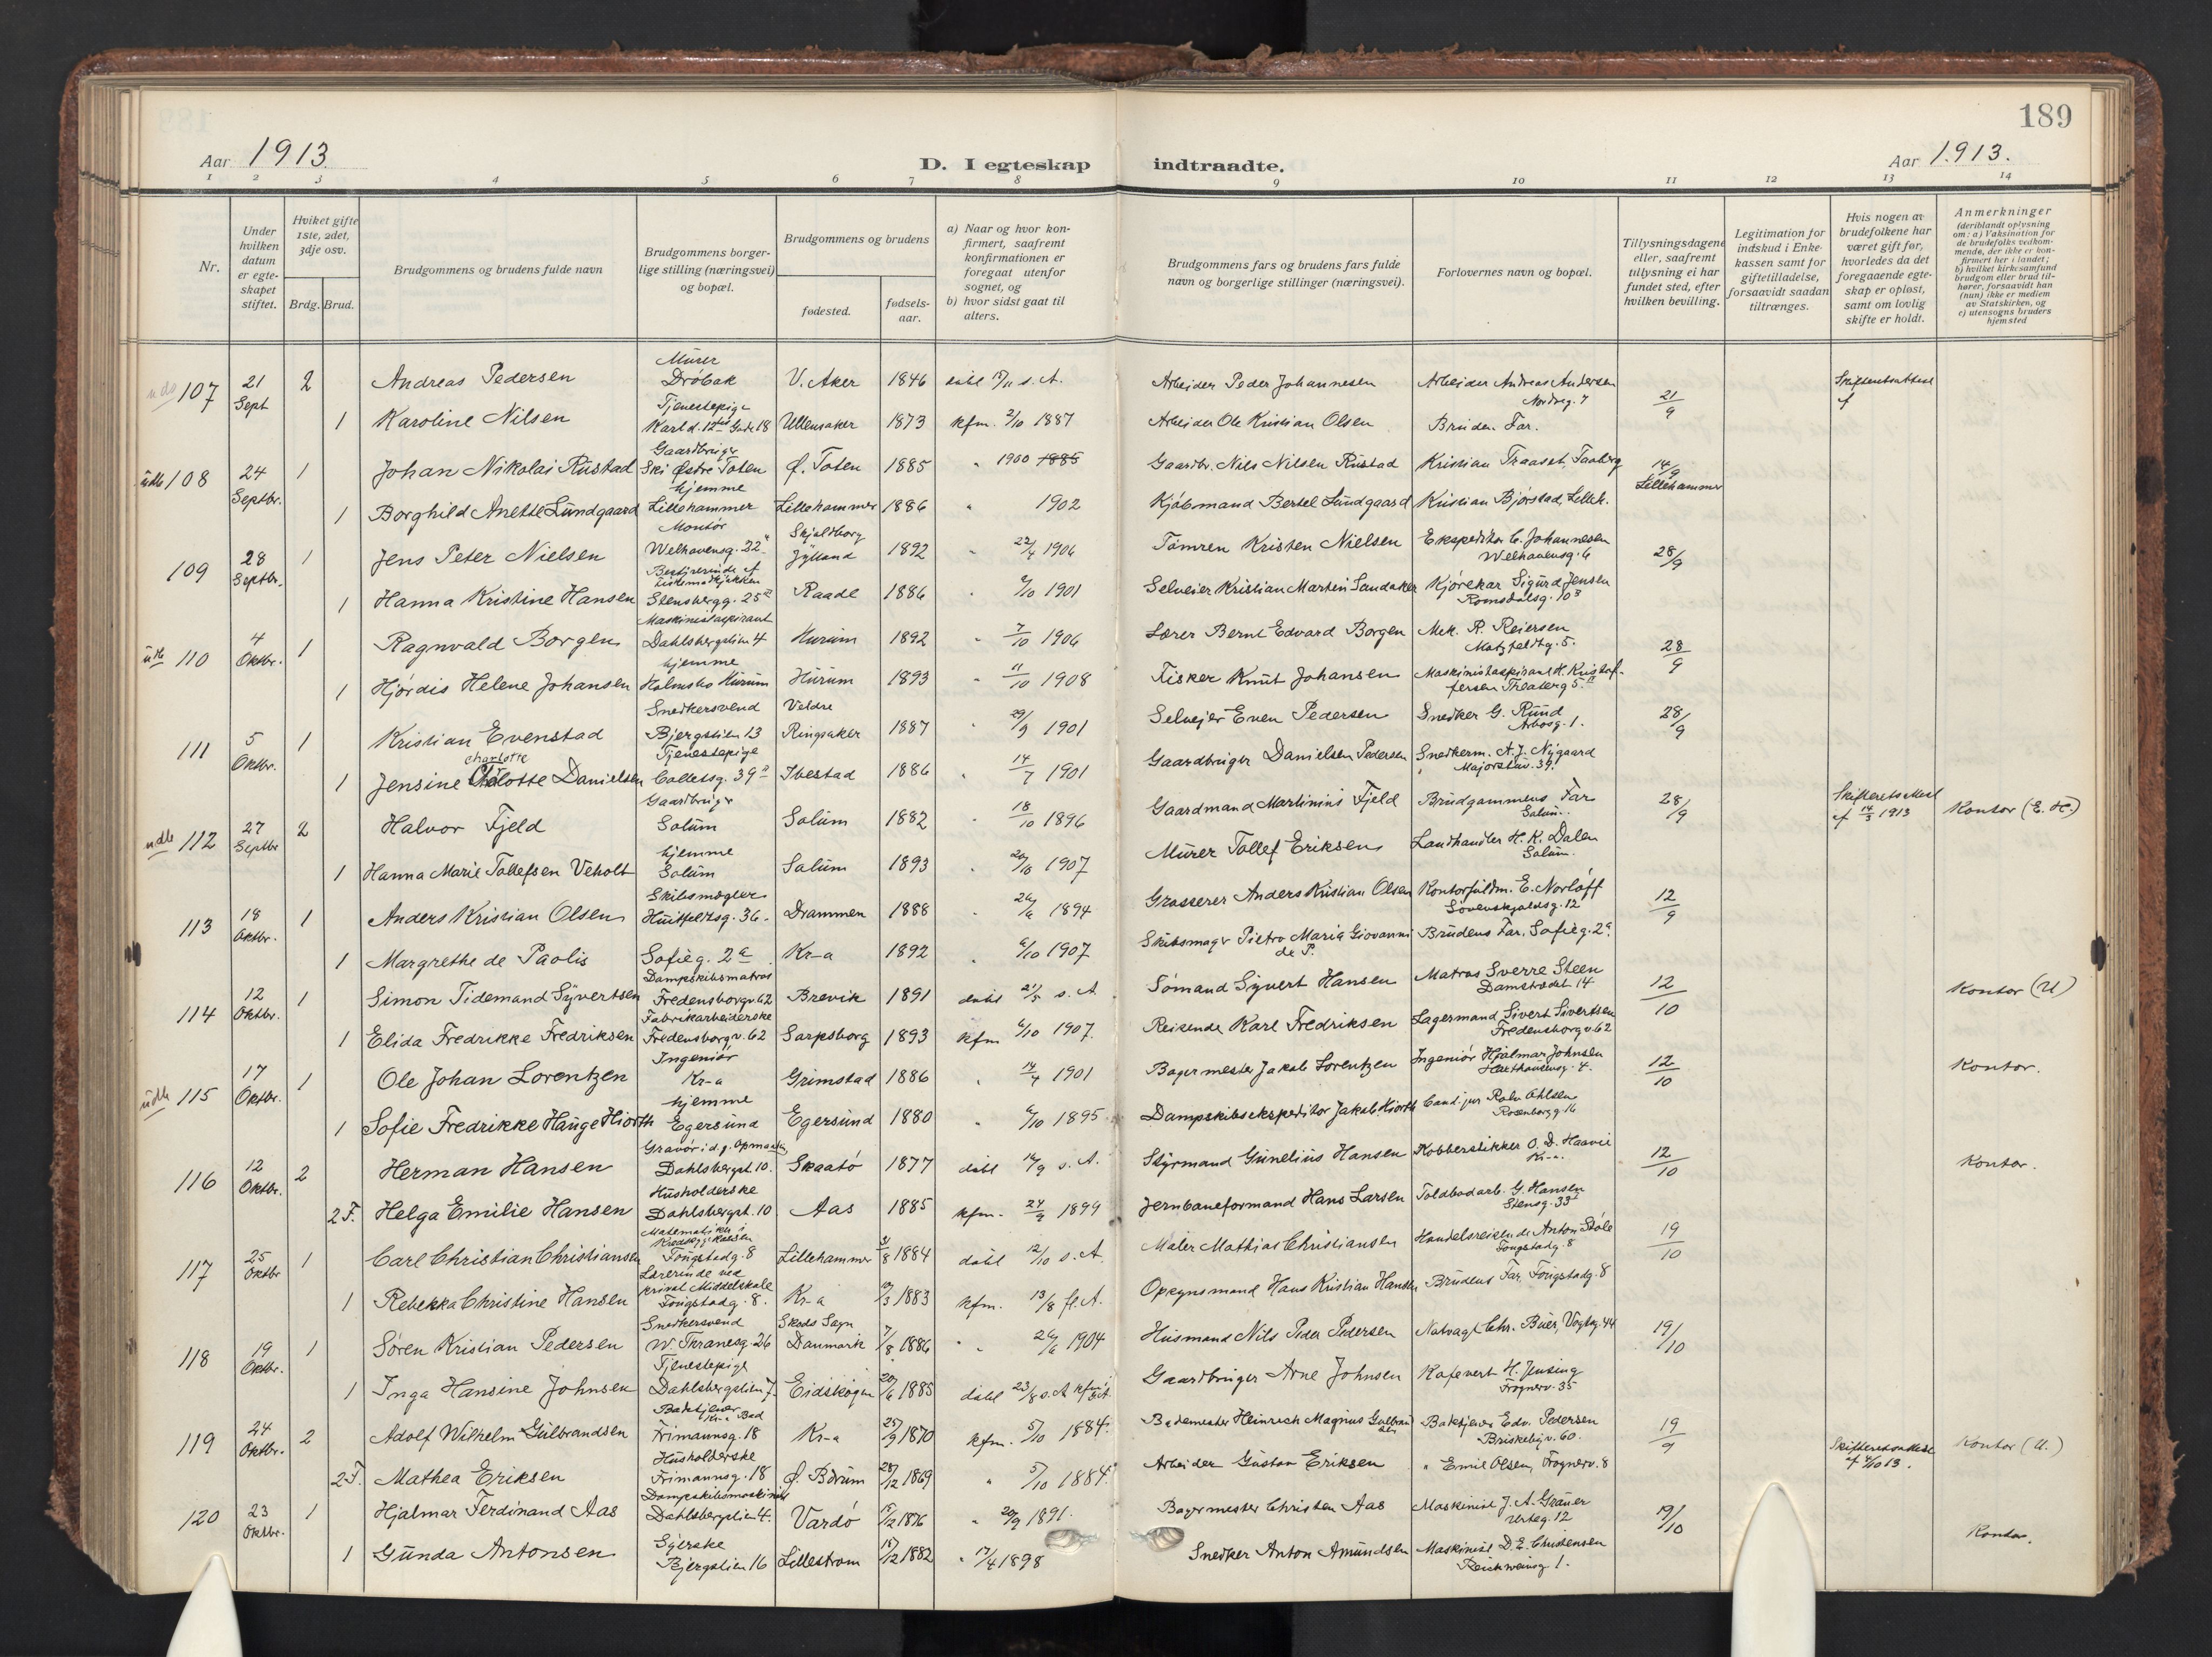 189
Aar 1913.
D. I egteskap indtraadte.
Aar 1913.
1 2 3 4 5 6 7 8 9 10 11 12 13 14
Nr.
Under hvilken datum er egteskapet stiftet.
Hviket gifte 1ste, 2det, 3dje osv.
Brdg. Brud.
Brudgommens og brudens fulde navn
Brudgommens borgerlige stilling (næringsvei) og bopæl.
Brudgommens og brudens
fødested.
fødselsaar.
a) Naar og hvor konfirmert, saafremt konfirmationen er foregaat utenfor sognet, og
b) hvor sidst gaat til alters.
Brudgommens fars og brudens fars fulde navn og borgerlige stillinger (næringsvei).
Forlovernes navn og bopæl.
Tillysningsdagene eller, saafremt tillysning ei har fundet sted, efter hvilken bevilling.
Legitimation for indskud i Enkekassen samt for giftetilladelse, forsaavidt saadan tiltrænges.
Hvis nogen av brudefolkene har været gift før, hvorledes da det foregaaende egteskap er opløst, samt om lovlig skifte er holdt.
Anmerkninger (deriblandt oplysning om: a) Vaksination for de brudefolks vedkommende, der ikke er konfirmert her i landet; b) hvilket kirkesamfund brudgom eller brud tilhører, forsaavidt han (hun) ikke er medlem av Statskirken, og c) utensogns bruders hjemsted
107 21 Sept 2 Andreas Pedersen Murer Drøbak V. Aker 1846 s. A. Arbeider Peder Johannesen Arbeider Andreas Andersen Nordreg. 7 21/9 Skifteretsattest
1 Karoline Nilsen Tjenestepige Karl d. 12tes Gade 18 Ullensaker 1873 kfm. 2/10 1887 Arbeider Ole Kristian Olsen Brudens Far.
108 24 Septbr. 1 Johan Nikolai Rustad Gaardbruger Ski Østre Toten Ø. Toten 1885 " 1900 1885 Gaardbr. Nils Nilsen Rustad Kristian Traaset, Faaberg 14/9 Lillehammer
1 Borghild Anette Lundgaard hjemme Lillehammer Lillehammer 1886 " 1902 Kjøbmand Bertel Lundgaard Kristian Bjørstad, Lilleh.
109 28 Septbr. 1 Jens Peter Nielsen Montør Welhavensg. 22 Skjoldborg Jylland 1892 " 22/4 1906 Tømren Kristen Nielsen Ekspeditør C. Johannesen Welhavensg. 6 28/9
1 Hanna Kristine Hansen Bestyrerinde af Stensbergg. 25 Raade 1886 " 6/10 1901 Selveier Kristian Martin Sandaker Kjørekar Sigurd Jensen Romsdalsg. 10
110 4 Oktbr. 1 Ragnvald Borgen Maskinistaspirant Dahlsbergstien 4 Hurum 1892 " 7/10 1906 Lærer Bernt Edvard Borgen Mek. R. Reiersen Motzfeldtg. 5. 28/9
1 Hjørdis Helene Johansen hjemme Holmsbo Hurum Hurum 1893 " 11/10 1908 Fisker Knut Johansen Maskinistaspirant H. Kristoffersen Theaterg 5.
111 5 Oktbr. 1 Kristian Evenstad Snedkersvend Bjergstien 13 Veldre Ringsaker 1887 " 29/9 1901 Selvejer Even Pedersen Snedker G. Rund Arbosg. 1. 28/9
1 Jensine Charlotte Danielsen Tjenestepige Colletsg. 39 Ibestad 1886 " 14/7 1901 Gaardbruger Danielsen Pedersen Snedkerm. A. J. Nygaard Majorstuv. 39.
112 27 Septbr 2 Halvor Fjeld Gaardbruger Solum Solum 1882 " 18/10 1896 Gaardmand Martinius Fjeld Brudgommens Far Solum. 28/9 Skifteretsattest af 14/3 1913 Kontor (E. H.)
1 Hanna Marie Tollefsen Veholt hjemme Solum Solum 1893 " 20/10 1907 Murer Tollef Eriksen Landhandler H. K. Dalen Solum.
113 18 Oktbr. 1 Anders Kristian Olsen Skibsmægler Huitfeldtsg. 36. Drammen 1888 " 1894 Grosserer Anders Kristian Olsen Kontorfuldm. E. Norløff Løvenskjoldsg. 12 12/9
1 Margrethe de Paolis Sofieg. 2a Kr-a 1892 " 6/10 1907 Skibsmægr Pietro Maria Giovanni de P. Brudens Far, Sofieg. 2a.
114 12 Oktbr. 1 Simon Tidemand Syvertsen Dampskibsmatros Fredensborgv. 62 Brevik 1891 21/5 s. A. Sømand Syvert Hansen Matros Sverre Steen Damstrædet 14 12/10 Kontor (U)
1 Elida Fredrikke Fredriksen Fabrikarbeiderske Fredensborgv. 62 Sarpsborg 1893 kfm 6/10 1907. Reisende Karl Fredriksen Lagermand Sivert Sivertsen Fredensborgv. 62
115 17 Oktbr. 1 Ole Johan Lorentzen Ingeniør Kr-a Grimstad 1886 " 14/4 1901 Bagermester Jakob Lorentzen Ingeniør Hjalmar Johnsen 12/10 Kontor.
1 Sofie Fredrikke Hauge Hiorth hjemme Egersund Egersund 1880 " 6/10 1895. Dampskibsekspeditør Jakob Hiorth Cand. jur Rolv Ohlsen Rosenborgg. 16
116 12 Oktbr. 2 Herman Hansen Gravør i d. g. Opmaaling Dahlsbergst. 10. Skaatø 1877 s. A. Styrmand Gunelius Hansen Kobberstikker O. D. Haavie Kr-a. 12/10 Kontor.
2 F. Helga Emilie Hansen Husholderske Dahlsbergst. 10 Aas 1885 kfm. 24/9 1899 Jernbaneformand Hans Larsen Toldbodarb. G. Hansen Stensg. 33
117 25 Oktbr 1 Carl Christian Christiansen Fougstadg. 8 Lillehammer 31/8 1884 12/10 s. A. Maler Mathias Christiansen Handelsreisende Anton Støle Fougstadg. 8 19/10
1 Rebekka Christine Hansen Lærerinde ved privat Middelskole Fougstadg. 8. Kr-a 1883 kfm. 13/8 fl. A. Opsynsmand Hans Kristian Hansen Brudens Far, Fougstadg. 8
118 19 Oktbr. 1 Søren Kristian Pedersen Snedkersvend W. Thranesg. 26 Skods Sogn Danmark 7/8 1886 " 1904 Husmand Nils Peder Pedersen Natvagt Chr. Buer, Vogtsg. 44 19/10
1 Inga Hansine Johnsen Tjenestepige Dahlsbergstien 7. Eidskogen 20/6 1885 23/8 s. A. Gaardbruger Arne Johnsen Kafevert H. Jensing Frognerv. 35
119 24 Oktbr. 2 Adolf Wilhelm Gulbrandsen Badetjener Kr.a Bad Frimannsg. 18 Kr-a 25/9 1870 kfm. 5/10 1884. Bademester Heinrich Magnus Gulbrandsen Badetjener Edv. Pedersen Briskebyv. 60. 19/9
2 F. Mathea Eriksen Husholderske Frimannsg. 18 Ø. Bærum 28/12 1869 " 5/10 1884. Arbeider Gustav Eriksen " Emil Olsen, Frognerv. 8 Skifteretsattest Kontor (U.)
120 23 Oktbr. 1 Hjalmar Ferdinand Aas Dampskibsmaskinist Dahlsbergstien 4. Vardø 1876 " 20/9 1891. Bagermester Christen Aas Maskinist J. A. Grauer Urteg. 12 19/10
1 Gunda Antonsen Syerske Bjergstien 16 Lillestrøm 1882 " 17/4 1898 Snedker Anton Amundsen Maskinist D. E. Christensen Reichweinsg. 1. Kontor.